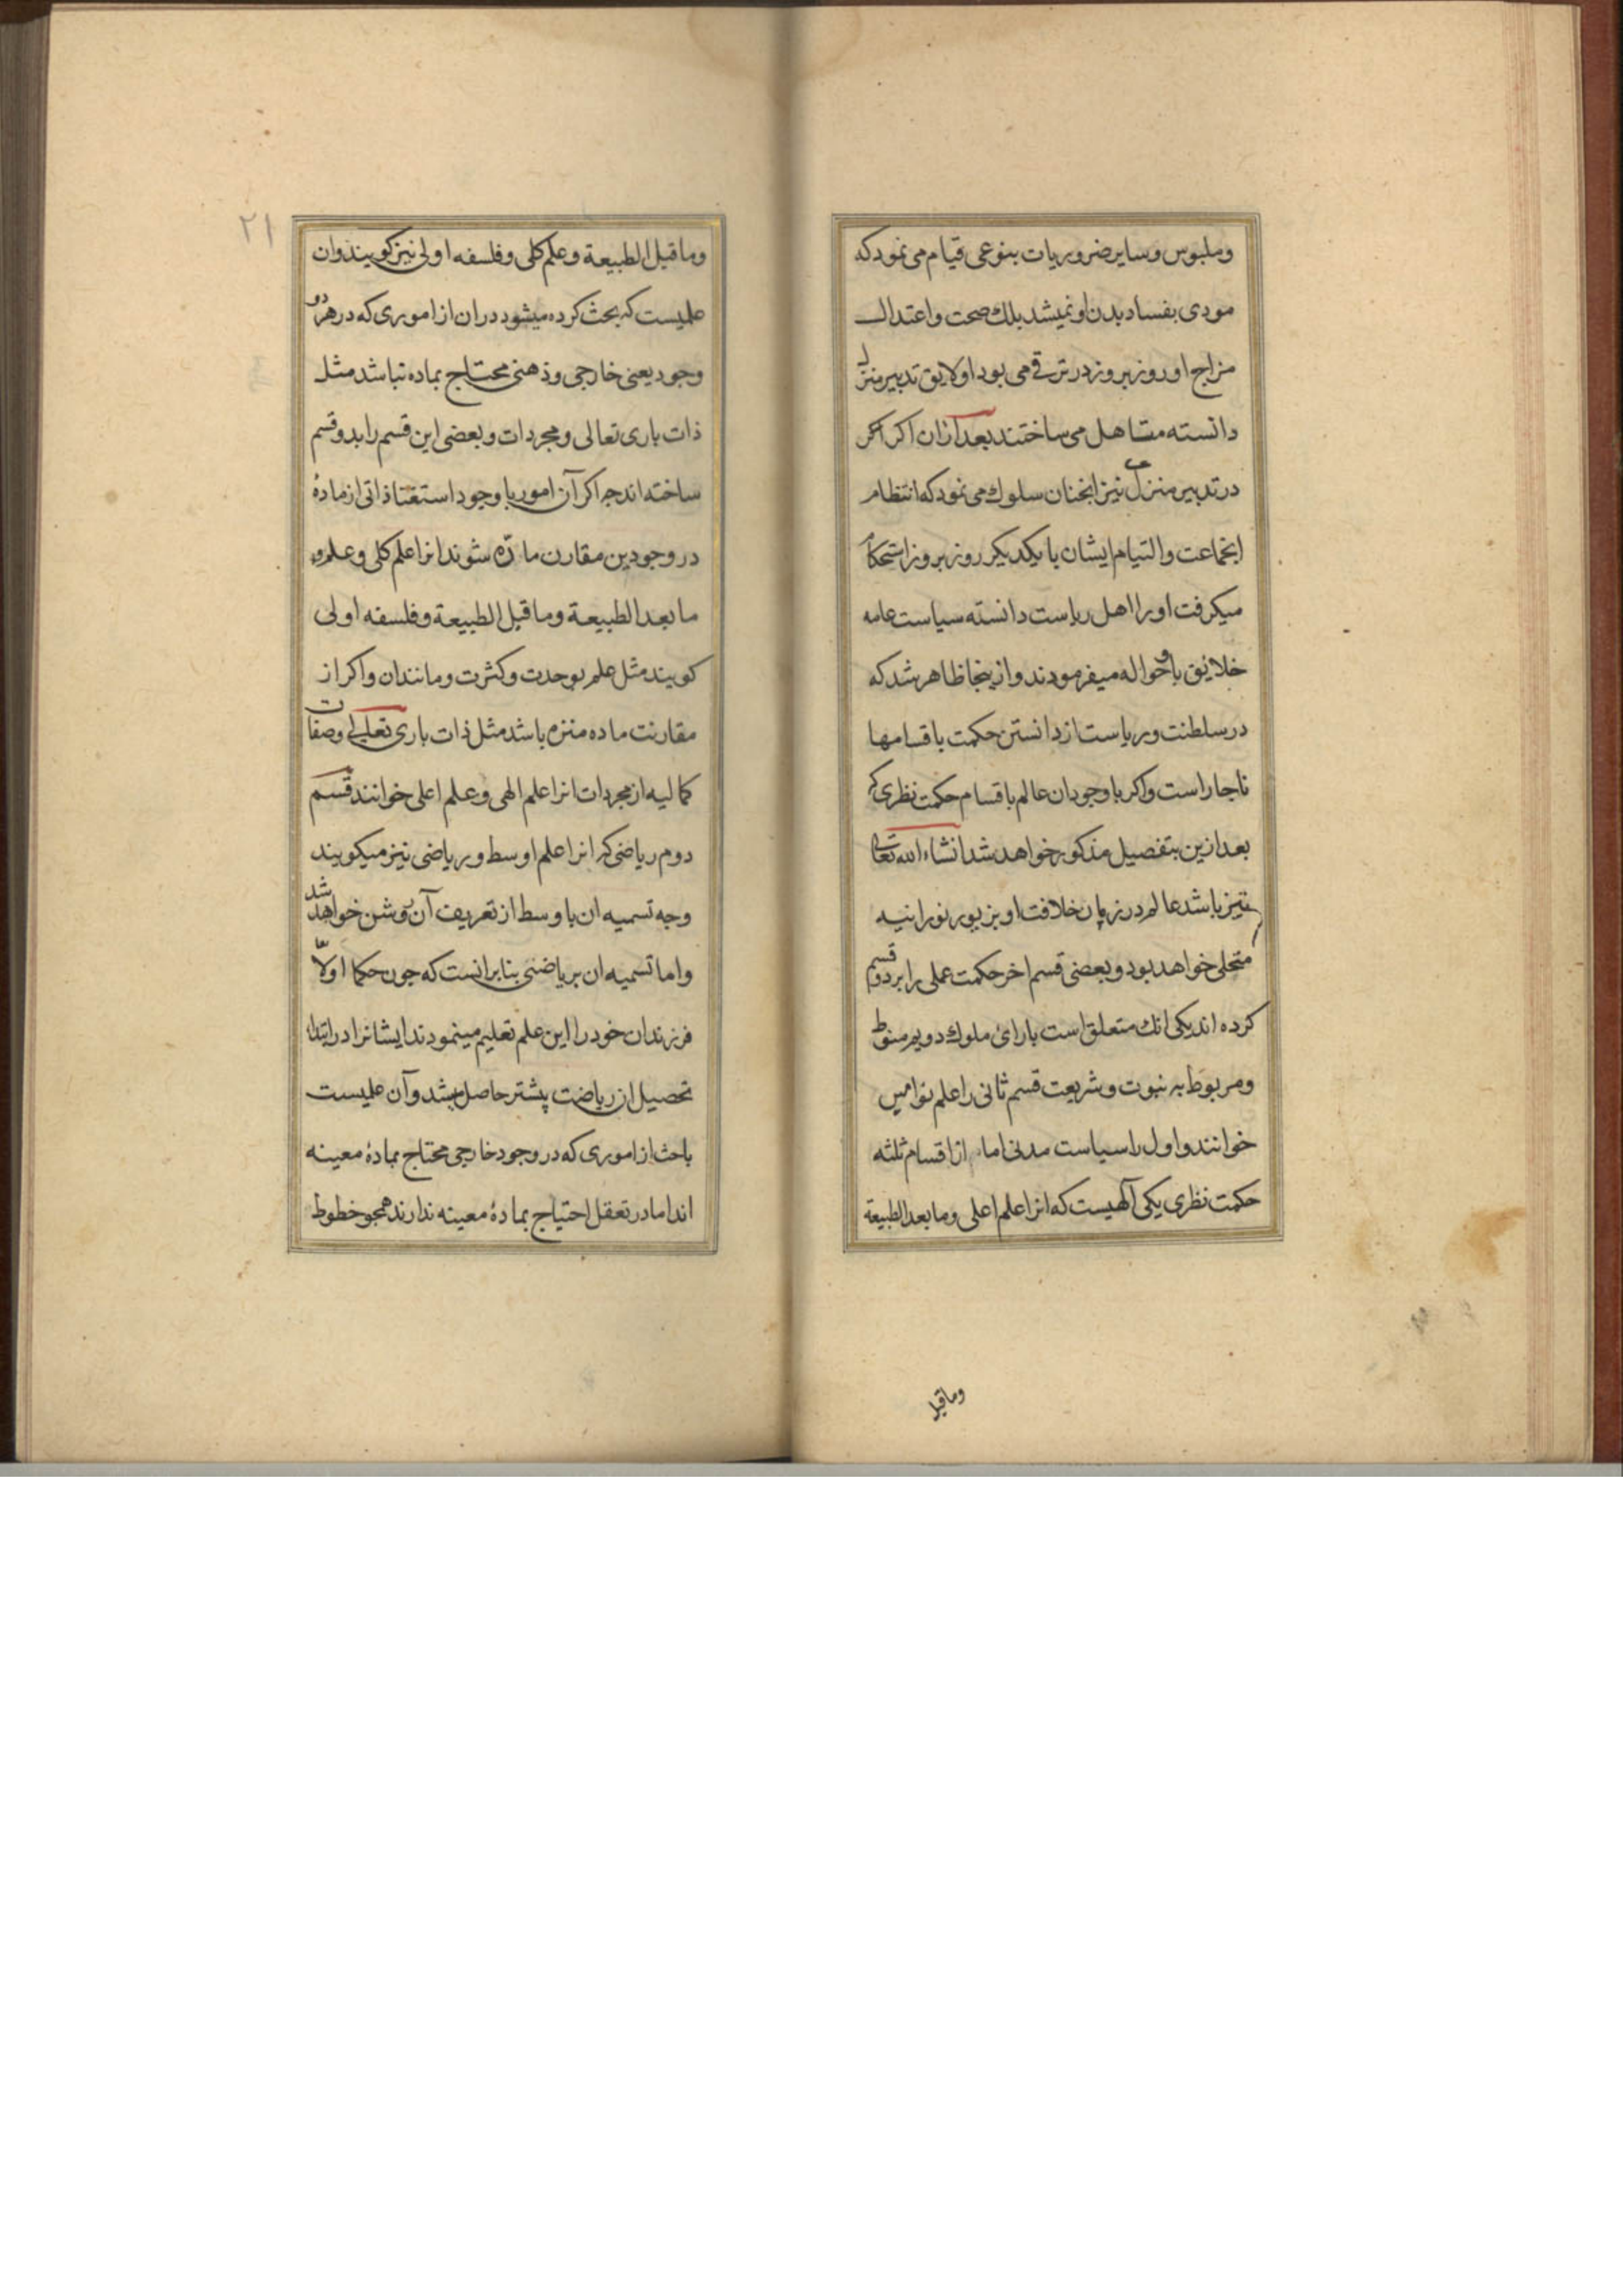 وملبوس وسایر ضروریات بنوعی قیام می نمود که
مودی بفساد بدن او نمیشد بلک صحت واعتدال
مزاج او روز بروز در ترقی می بود او لایق تدبیر منزل
دانسته متاهل می ساختند بعد ازان اکر
در تدبیر منزل نیز انجنان سلوک می نمود که انتظام
انجماعت والتیام ایشان با یکدیکر روز بروز استحکام
میکرفت او را اهل ریاست دانسته سیاست عامه
خلائق باو حواله میفرمودند وازینجا ظاهر شد که
در سلطنت وریاست از دانستن حکمت باقسامها
ناجار است واکر با وجود ان عالم باقسام حکمت نظری که
بعد ازین بتفصیل مذکور خواهد شد انشاء الله تعالی
نیز باشد عالم در زمان خلافت او بزیور نورانیه
متحلی خواهد بود وبعضی قسم اخر حکمت عملی را بر دو قسم
کرده اند یکی انک متعلق است بارای ملوک دویم منوط
ومربوط به نبوت وشریعت قسم ثانی را علم نوامیس
خوانند واول را سیاست مدنی اما از اقسام ثلثه
حکمت نظری یکی آلهیست که انرا علم اعلی وما بعد الطبیعة
وما قبل
۲۱
وما قبل الطبیعة وعلم کلی وفلسفه اولی نیز کویند وان
علمیست که بحث کرده میشود دران از اموری که در هر دو
وجود یعنی خارجی وذهنی محتاج بماده نباشد مثل
ذات باری تعالی ومجردات وبعضی این قسم را بدو قسم
ساخته اند جه اکر آن امور با وجود استغنا ذاتی از مادهٔ
در وجودین مقارن مادّه شوند انرا علم کلی وعلم
ما بعد الطبیعة وما قبل الطبیعة وفلسفه اولی
کویند مثل علم بوحدت وکثرت ومانند ان واکر از
مقارنت ماده منزه باشد مثل ذات باری تعالی وصفات
کمالیه از مجردات انرا علم الهی وعلم اعلی خوانند قسم
دوم ریاضی که انرا علم اوسط وریاضی نیز میکویند
وجه تسمیه ان باوسط از تعریف آن روشن خواهد شد
واما تسمیه ان بریاضی بنا برانست که جون حکما اولاً
فرزندان خود را این علم تعلیم مینمودند ایشانرا در ابتدا
تحصیل ان ریاضت پشتر حاصل میشد وآن علمیست
باحث از اموری که در وجود خارجی محتاج بمادهٔ معینه
اند اما در تعقل احتیاج بمادهٔ معینه ندارند همجو خطوط